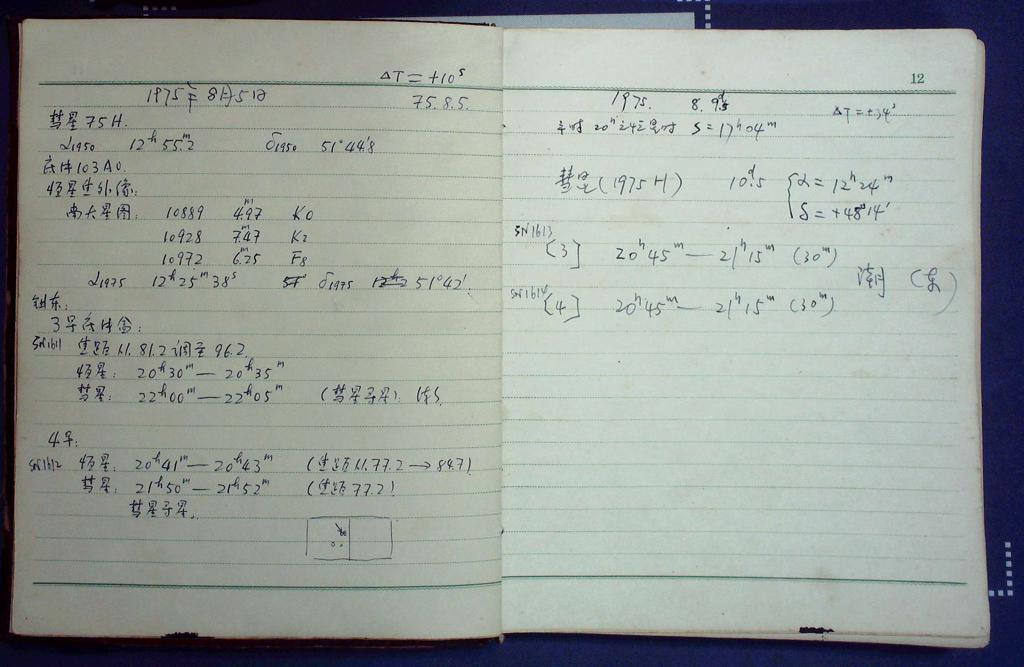 ΔT = +10ˢ
1975年8月5日 75.8.5.
彗星75H.
α1950 12ʰ55.ᵐ2 δ1950 51°44.′8
底片103AO.
恒星焦外像:
南大星图: 10889 4.ᵐ97 K0
10928 7.ᵐ47 K2
10972 6.ᵐ25 F8
α1975 12ʰ25ᵐ38ˢ δ1975 51°42′.
3号底片盒:
SN1611 焦距从81.2调至96.2
恒星: 20ʰ30ᵐ — 20ʰ35ᵐ
彗星: 22ʰ00ᵐ — 22ʰ05ᵐ (彗星寻星)
4号:
SN1612 恒星: 20ʰ41ᵐ — 20ʰ43ᵐ (焦距从77.2 → 84.7)
彗星: 21ʰ50ᵐ — 21ʰ52ᵐ (焦距77.2)
彗星寻星.
12
1975. 8. 9ᵈ.5
ΔT = +34ˢ
20ʰ S = 17ʰ04ᵐ
彗星(1975H) 10ᵈ.5 α = 12ʰ24ᵐ
δ = +48°14′
SN1613
[3] 20ʰ45ᵐ — 21ʰ15ᵐ (30ᵐ)
(东)
SN1614
[4] 20ʰ45ᵐ — 21ʰ15ᵐ (30ᵐ)